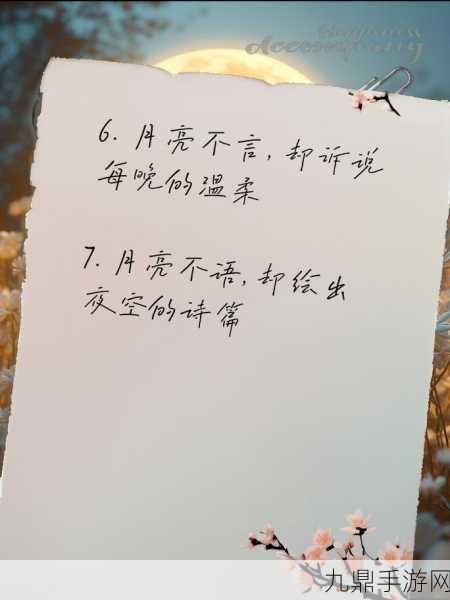 Happiness
Accompany
6. 月亮不言，却诉说
每晚的温柔
7. 月亮不语，却绘出
夜空的诗篇
九鼎手游网